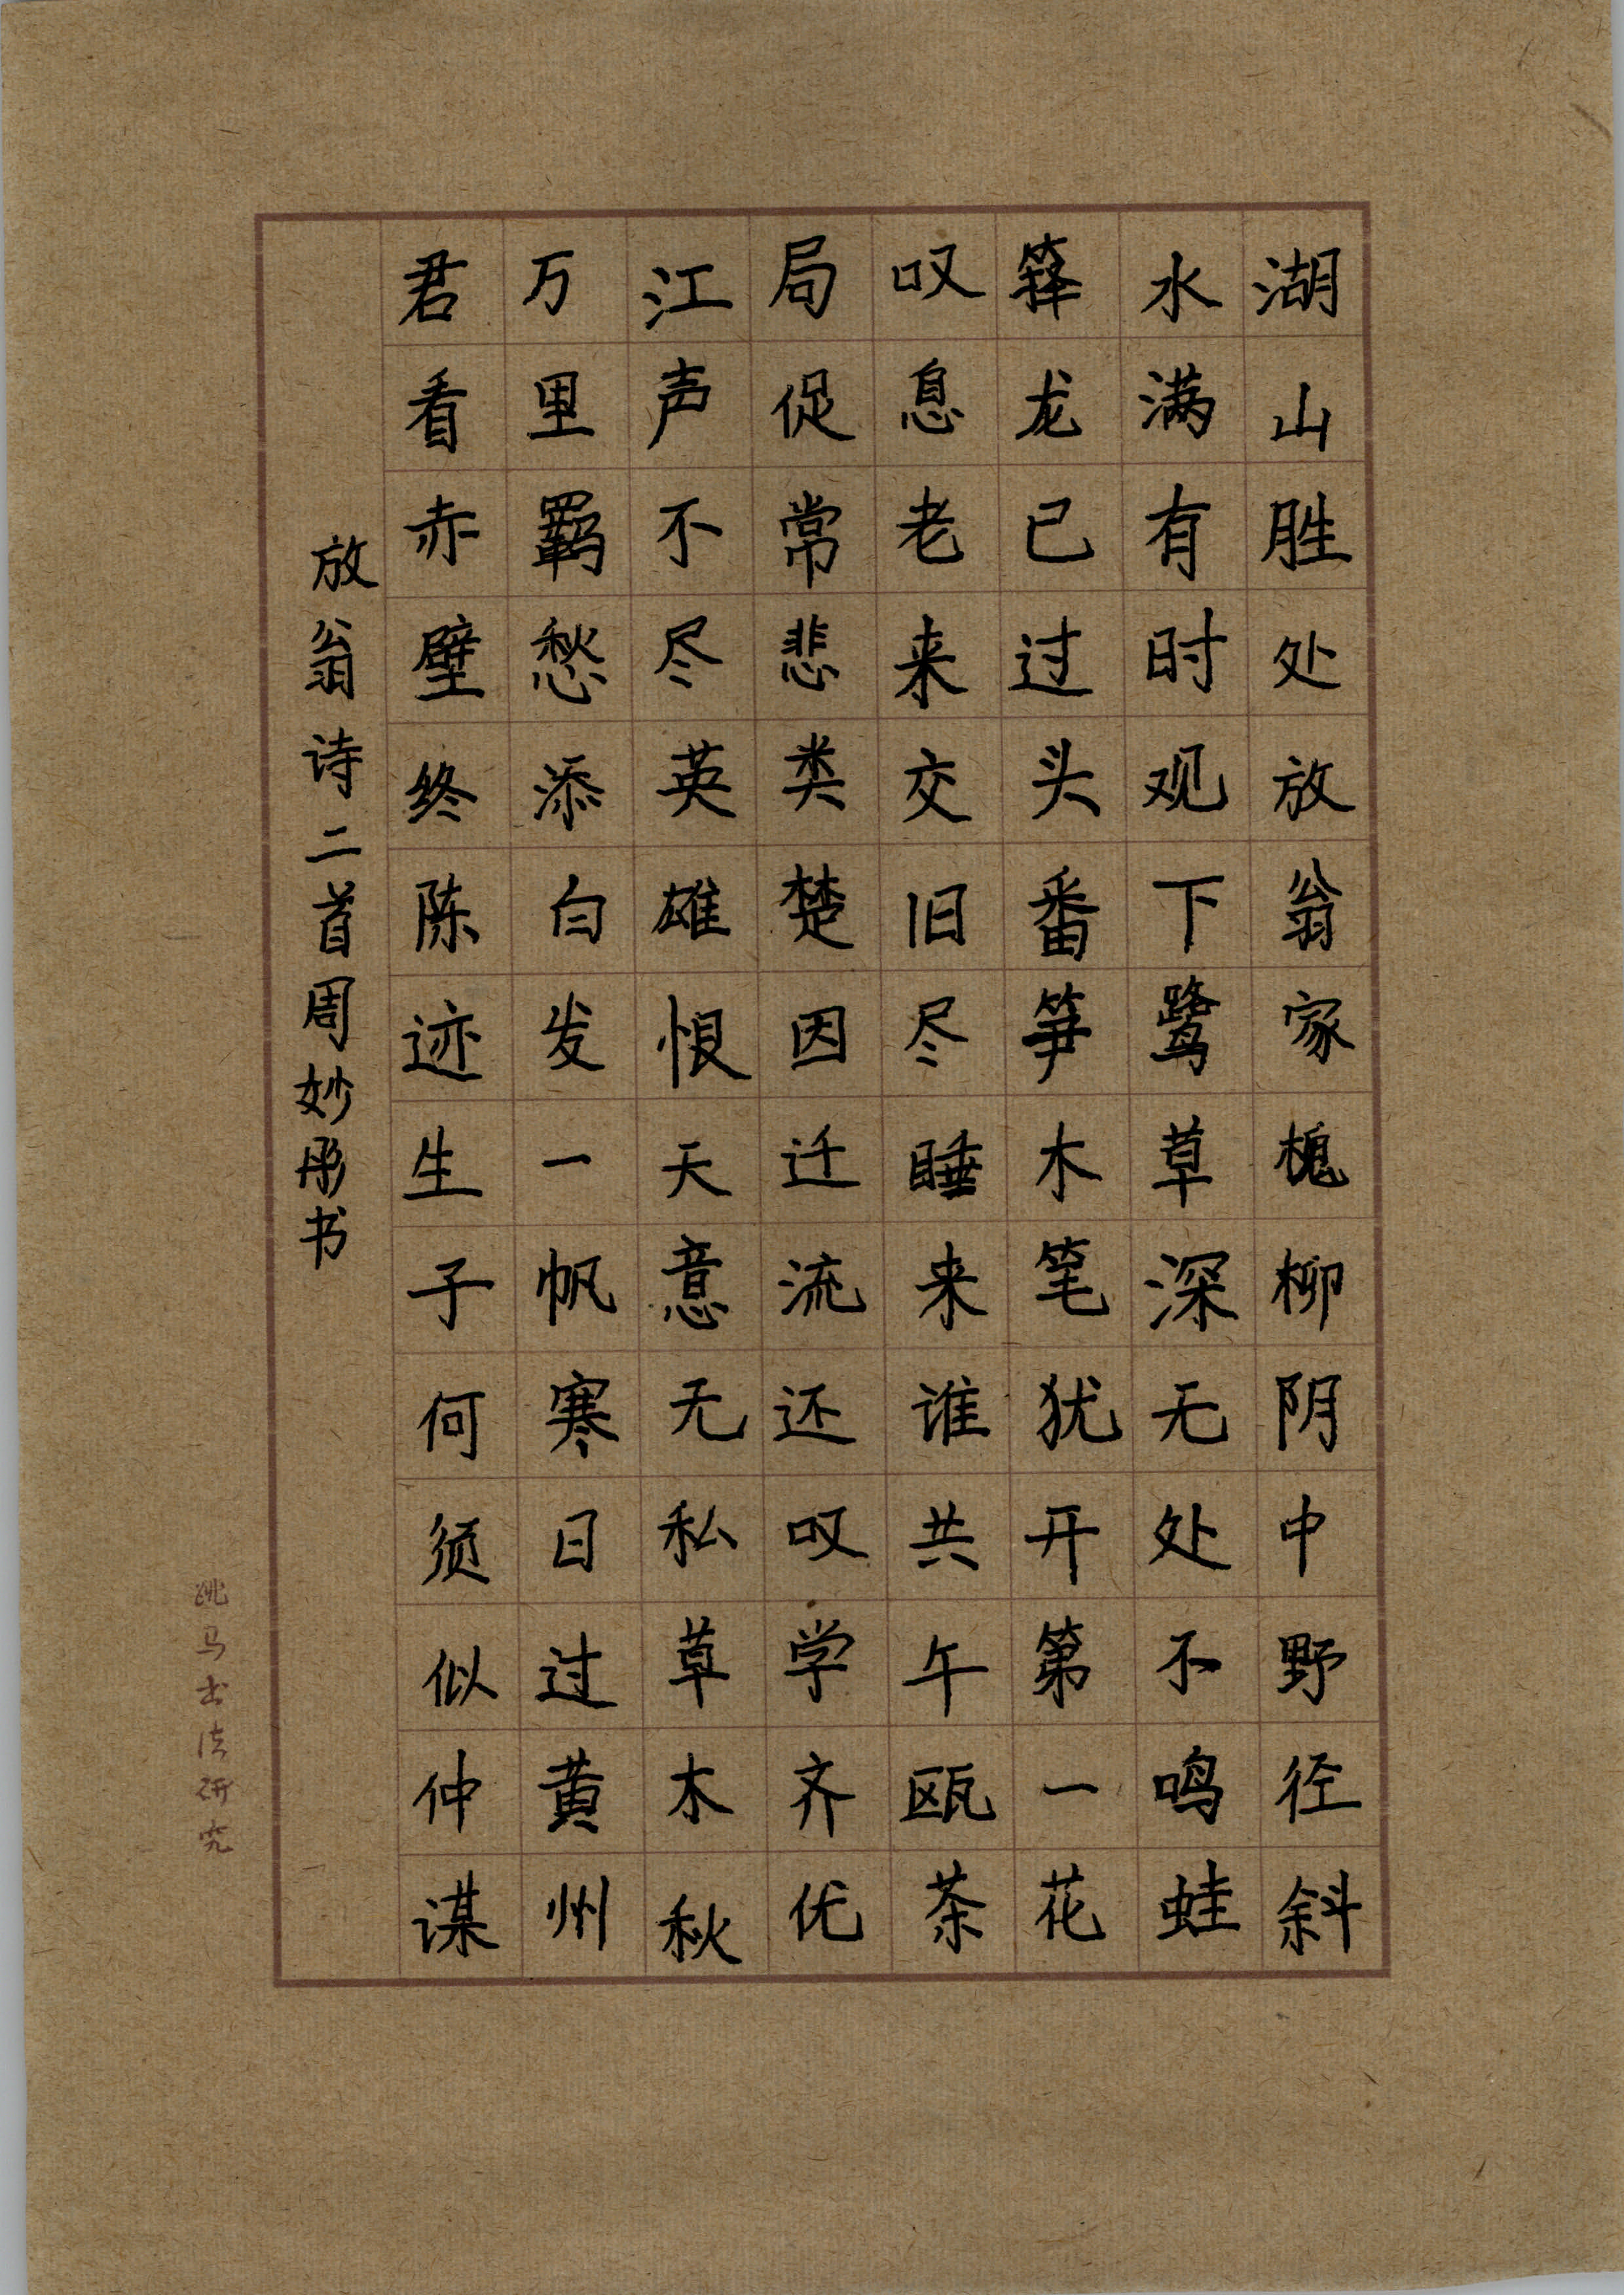 湖山胜处放翁家槐柳阴中野径斜
水满有时观下鹭草深无处不鸣蛙
箨龙已过头番笋木笔犹开第一花
叹息老来交旧尽睡来谁共午瓯茶
局促常悲类楚因迁流还叹学齐优
江声不尽英雄恨天意无私草木秋
万里羁愁添白发一帆寒日过黄州
君看赤壁终陈迹生子何须似仲谋
放翁诗二首周妙彤书
跳马书法研究